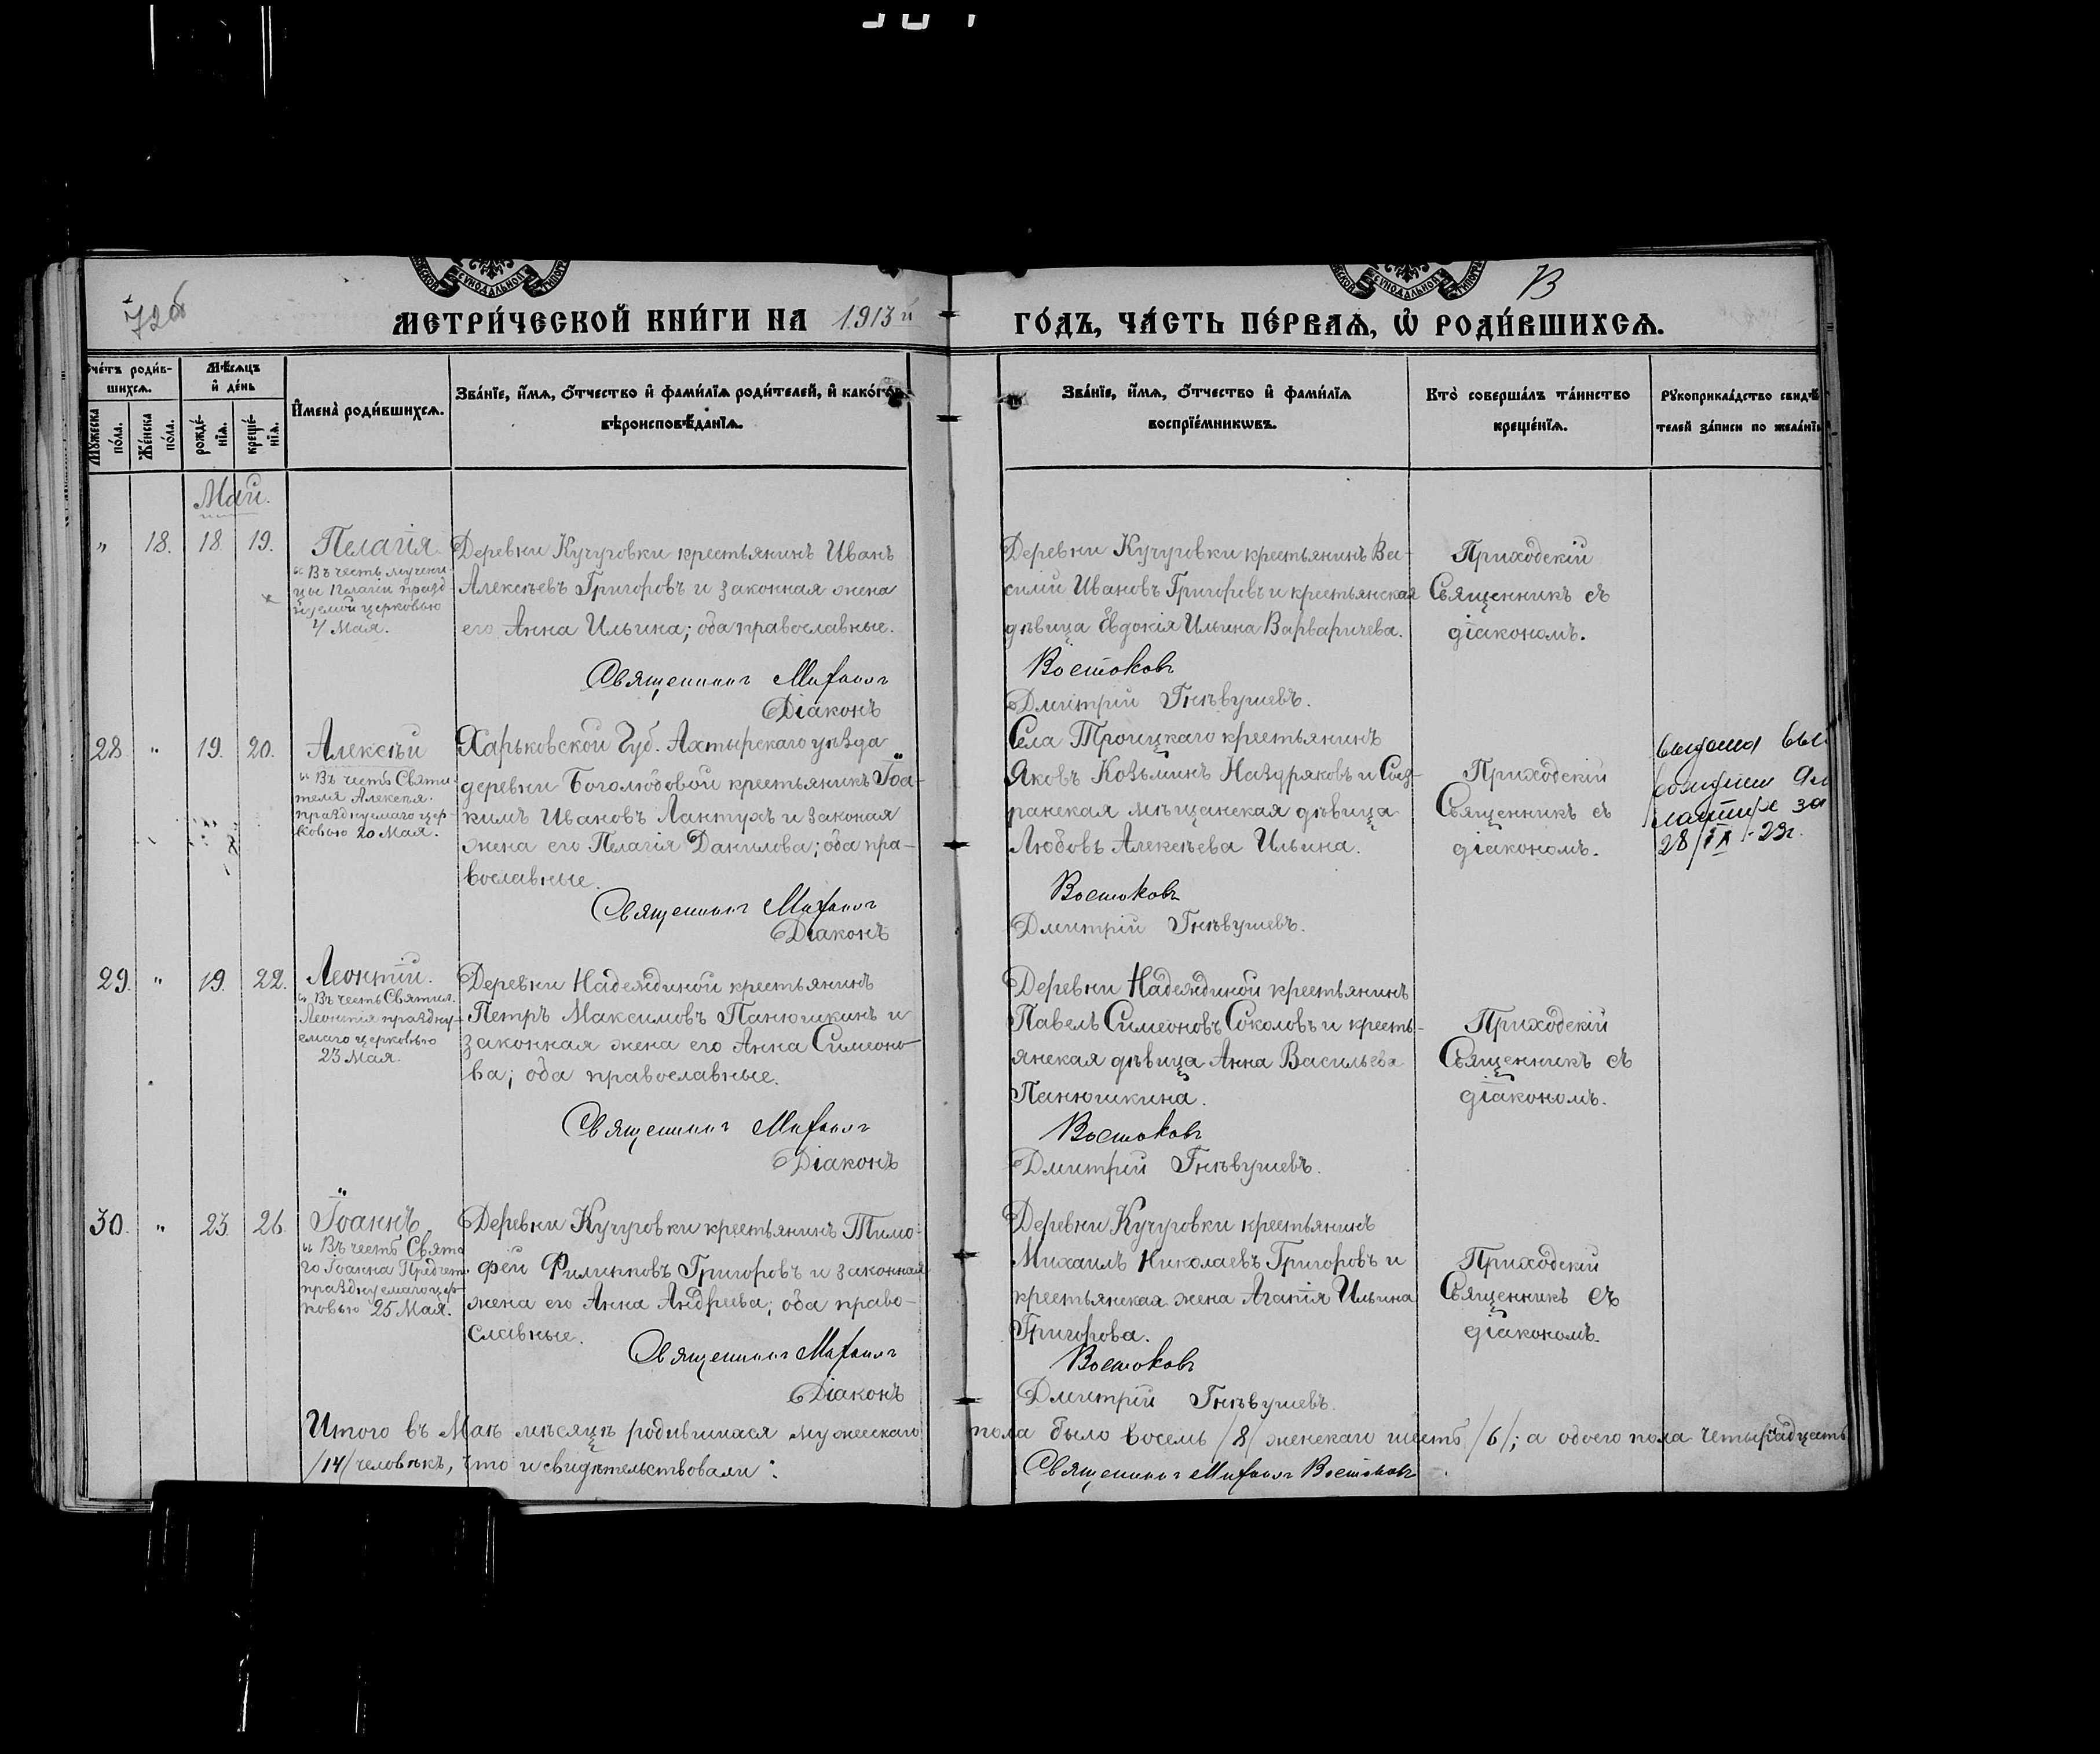 72об
73
МЕТРИ́ЧЕСКОЙ КНИ́ГИ НА 1913 й ГО́ДЪ, ЧА́СТЬ ПЕ́РВАѦ, Ѡ҆ РОДИ́ВШИХСѦ.
Сче́тъ роди́в-
шихсѧ.
Мѣ́сѧцъ
и҆ де́нь
И҆мена̀ роди́вшихсѧ.
Зва́нїе, и҆́мѧ, ѻ҆́тчество и҆ фами́лїѧ роди́телей, и҆ како́гѡ
вѣроисповѣ́данїѧ.
Зва́нїе, и҆́мѧ, ѻ҆́тчество и҆ фами́лїѧ
воспрїе́мникѡвъ.
Кто̀ соверша́лъ та́инство
креще́нїѧ.
Рꙋкоприкла́дство свидѣ́
телей за́писи по жела́нїю
Мꙋ́жеска по́ла.
Же́нска по́ла.
рожде́нїѧ.
креще́нїѧ.
Май.
" 18. 18 19.
Пелагія
и Въ честь мучени-
цы Пелагіи празд-
нуемой церковью
4 Мая.
Деревни Кучуговки крестьянинъ Иванъ
Алексѣевъ Григоровъ и законная жена
его Анна Ильина; оба православные.
Священникъ Михаилъ
Діаконъ
Деревни Кучуговки крестьянинъ Ва-
силій Ивановъ Григоровъ и крестьянская
дѣвица Евдокія Ильина Варваричева.
Востоковъ
Дмитрій Гнѣвушевъ.
Приходскій
Священникъ съ
діакономъ.
28 " 19. 20.
Алексѣй
и Въ честь Святи-
теля Алексѣя.
празднуемаго цер-
ковью 20 Мая.
Харьковской Губ. Ахтырскаго уѣзда
деревни Боголюбовой крестьянинъ Іоа-
кимъ Ивановъ Лантухъ и законая
жена его Пелагія Данилова; оба пра-
вославные.
Священникъ Михаилъ
Діаконъ
Села Троицкаго крестьянинъ
Яковъ Козьминъ Наздряковъ и Сыз-
ранская мѣщанская дѣвица
Любовь Алексѣева Ильина.
Востоковъ
Дмитрій Гнѣвушевъ.
Приходскій
Священникъ съ
діакономъ.
выдана
за
28/IX-23г.
29. " 19. 22.
Леонтій.
и Въ честь Святит.
Леонтія праздну-
емаго церковью
23 Мая.
Деревни Надеждиной крестьянинъ
Петръ Максимовъ Панюшкинъ и
законная жена его Анна Симеоно-
ва; оба православные.
Священникъ Михаилъ
Діаконъ
Деревни Надеждиной крестьянинъ
Павелъ Симеоновъ Соколовъ и кресть-
янская дѣвица Анна Васильева
Панюшкина.
Востоковъ
Дмитрій Гнѣвушевъ.
Приходскій
Священникъ съ
діакономъ.
30. " 23 26
Іоаннъ
и Въ честь Свята
го Іоанна Предтеч.
празднуемаго цер-
ковью 25 Мая.
Деревни Кучуговки крестьянинъ Тимо-
фей Филипповъ Григоровъ и законная
жена его Анна Андреева; оба право-
славные.
Священникъ Михаилъ
Діаконъ
Деревни Кучуговки крестьянинъ
Михаилъ Николаевъ Григоровъ и
крестьянская жена Агапія Ильина
Григорова.
Востоковъ
Дмитрій Гнѣвушевъ.
Приходскій
Священникъ съ
діакономъ.
Итого въ Маѣ мѣсяцѣ родившихся мужескаго пола было восемь /8/ женскаго шесть /6/; а обоего пола четырнадцать
/14/ человѣкъ, что и свидѣтельствовали:
Священникъ Михаилъ Востоковъ